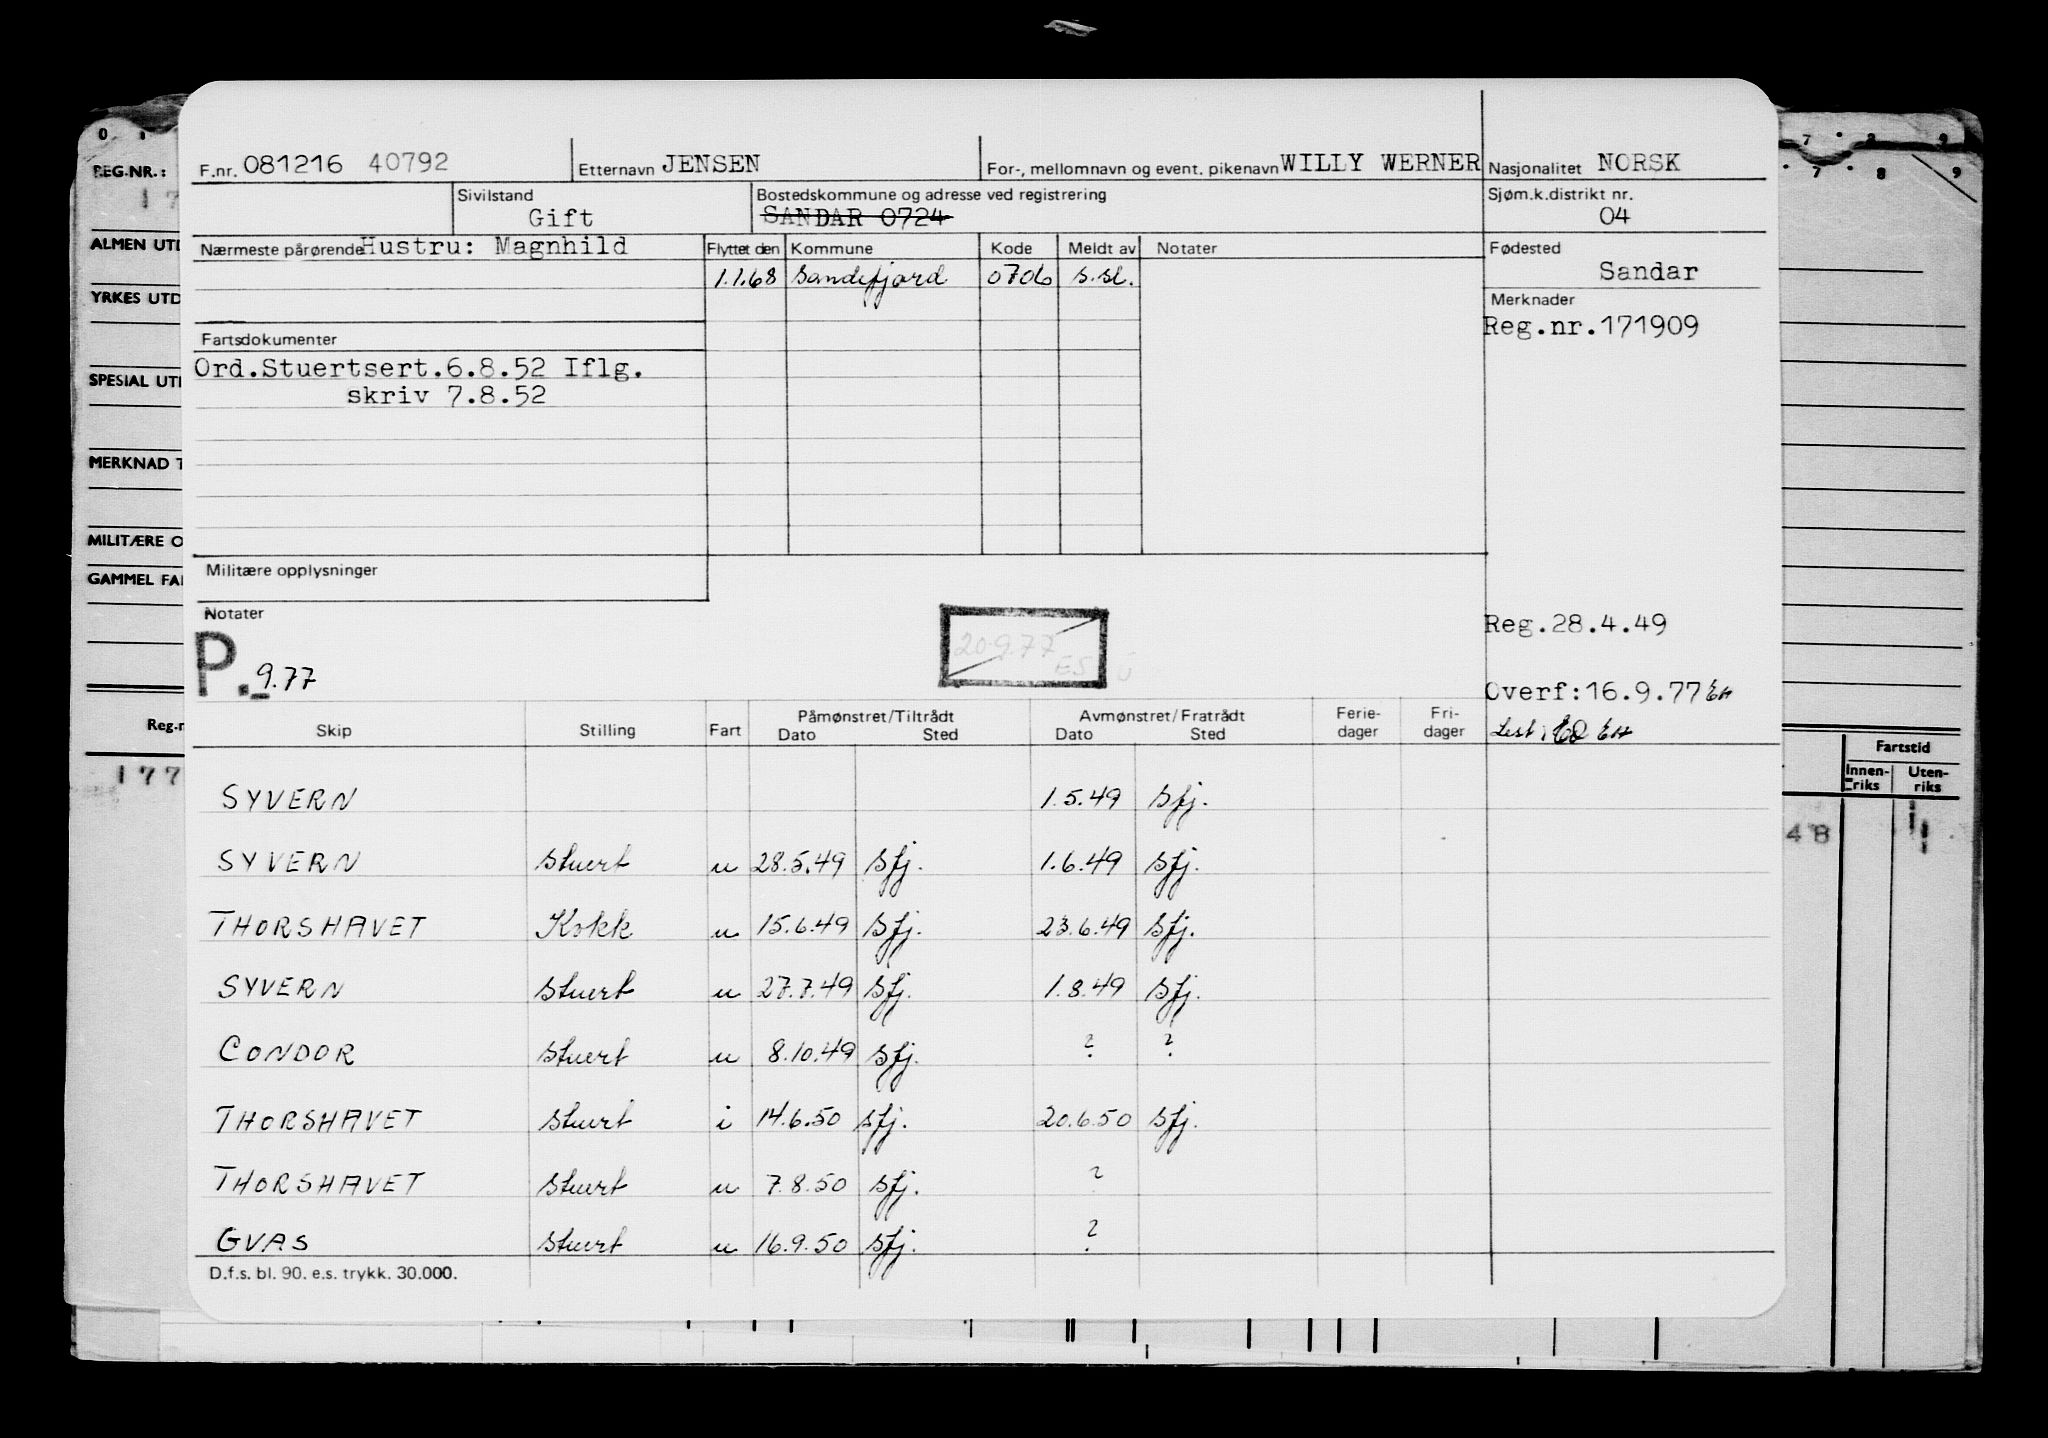 0 1 7 8 9
7 8 9
REG.NR.:
17
ALMEN UTD
YRKES UTD
SPESIAL UTD
MERKNAD T
MILITÆRE O
GAMMEL FA
Reg.n
177
Fartstid
Innen-riks Uten-riks
48
F.nr. 081216 40792 Etternavn JENSEN For-, mellomnavn og event. pikenavn WILLY WERNER Nasjonalitet NORSK
Sivilstand Bostedskommune og adresse ved registrering Sjøm.k.distrikt nr.
Gift SANDAR 0724 04
Nærmeste pårørende Hustru: Magnhild Flyttet den Kommune Kode Meldt av Notater Fødested
1.1.68 Sandefjord 0706 s.sl. Sandar
Merknader
Fartsdokumenter Reg.nr.171909
Ord.Stuertsert.6.8.52 Iflg.
skriv 7.8.52
Militære opplysninger
Notater Reg.28.4.49
P. 9.77 20.9.77 ES
Overf:16.9.77 EH
Skip Stilling Fart Påmønstret/Tiltrådt Avmønstret/Fratrådt Ferie-dager Fri-dager Lest: EH
Dato Sted Dato Sted
SYVERN 1.5.49 Sfj.
SYVERN Stuert u 28.5.49 Sfj. 1.6.49 Sfj.
THORSHAVET Kokk u 15.6.49 Sfj. 23.6.49 Sfj.
SYVERN Stuert u 27.7.49 Sfj. 1.8.49 Sfj.
CONDOR Stuert u 8.10.49 Sfj. ? ?
THORSHAVET Stuert i 14.6.50 Sfj. 20.6.50 Sfj.
THORSHAVET Stuert u 7.8.50 Sfj. ?
GVAS Stuert u 16.9.50 Sfj. ?
D.f.s. bl. 90. e.s. trykk. 30.000.